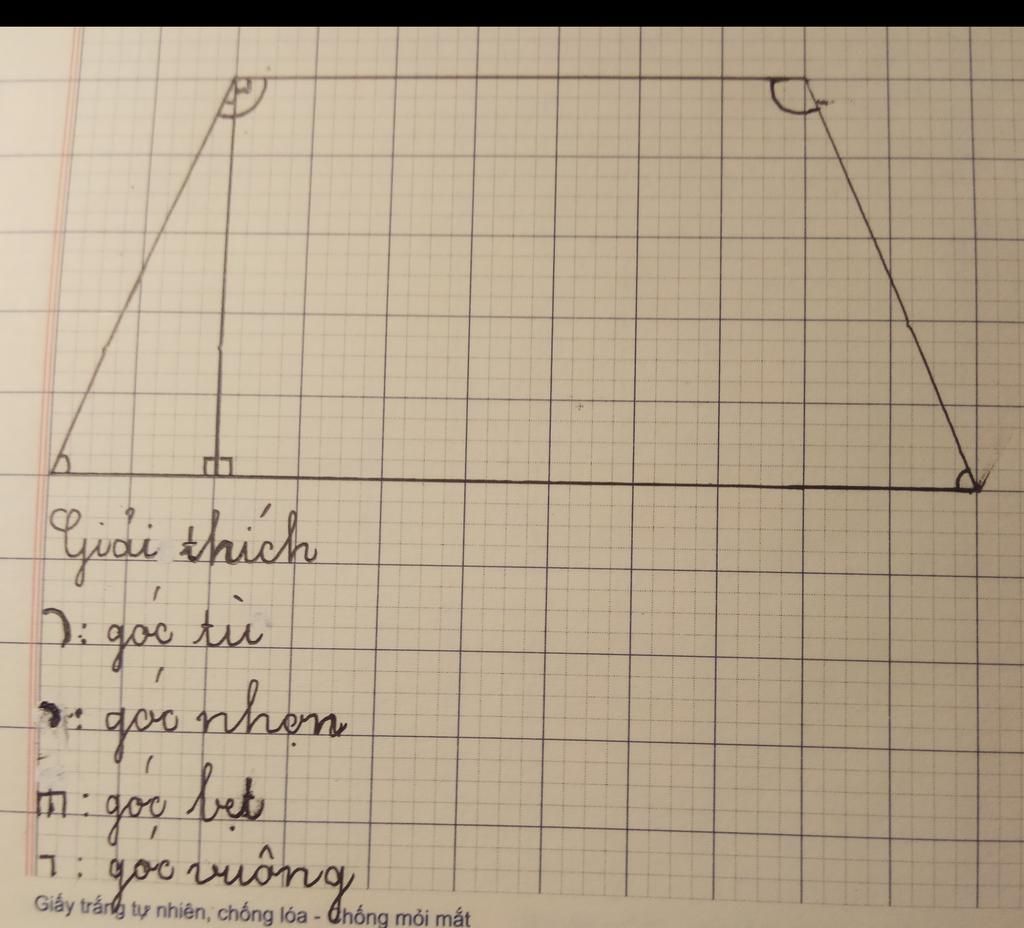 Giải thích
: góc tù
: góc nhọn
: góc bẹt
: góc vuông
Giấy trắng tự nhiên, chống lóa - Chống mỏi mắt